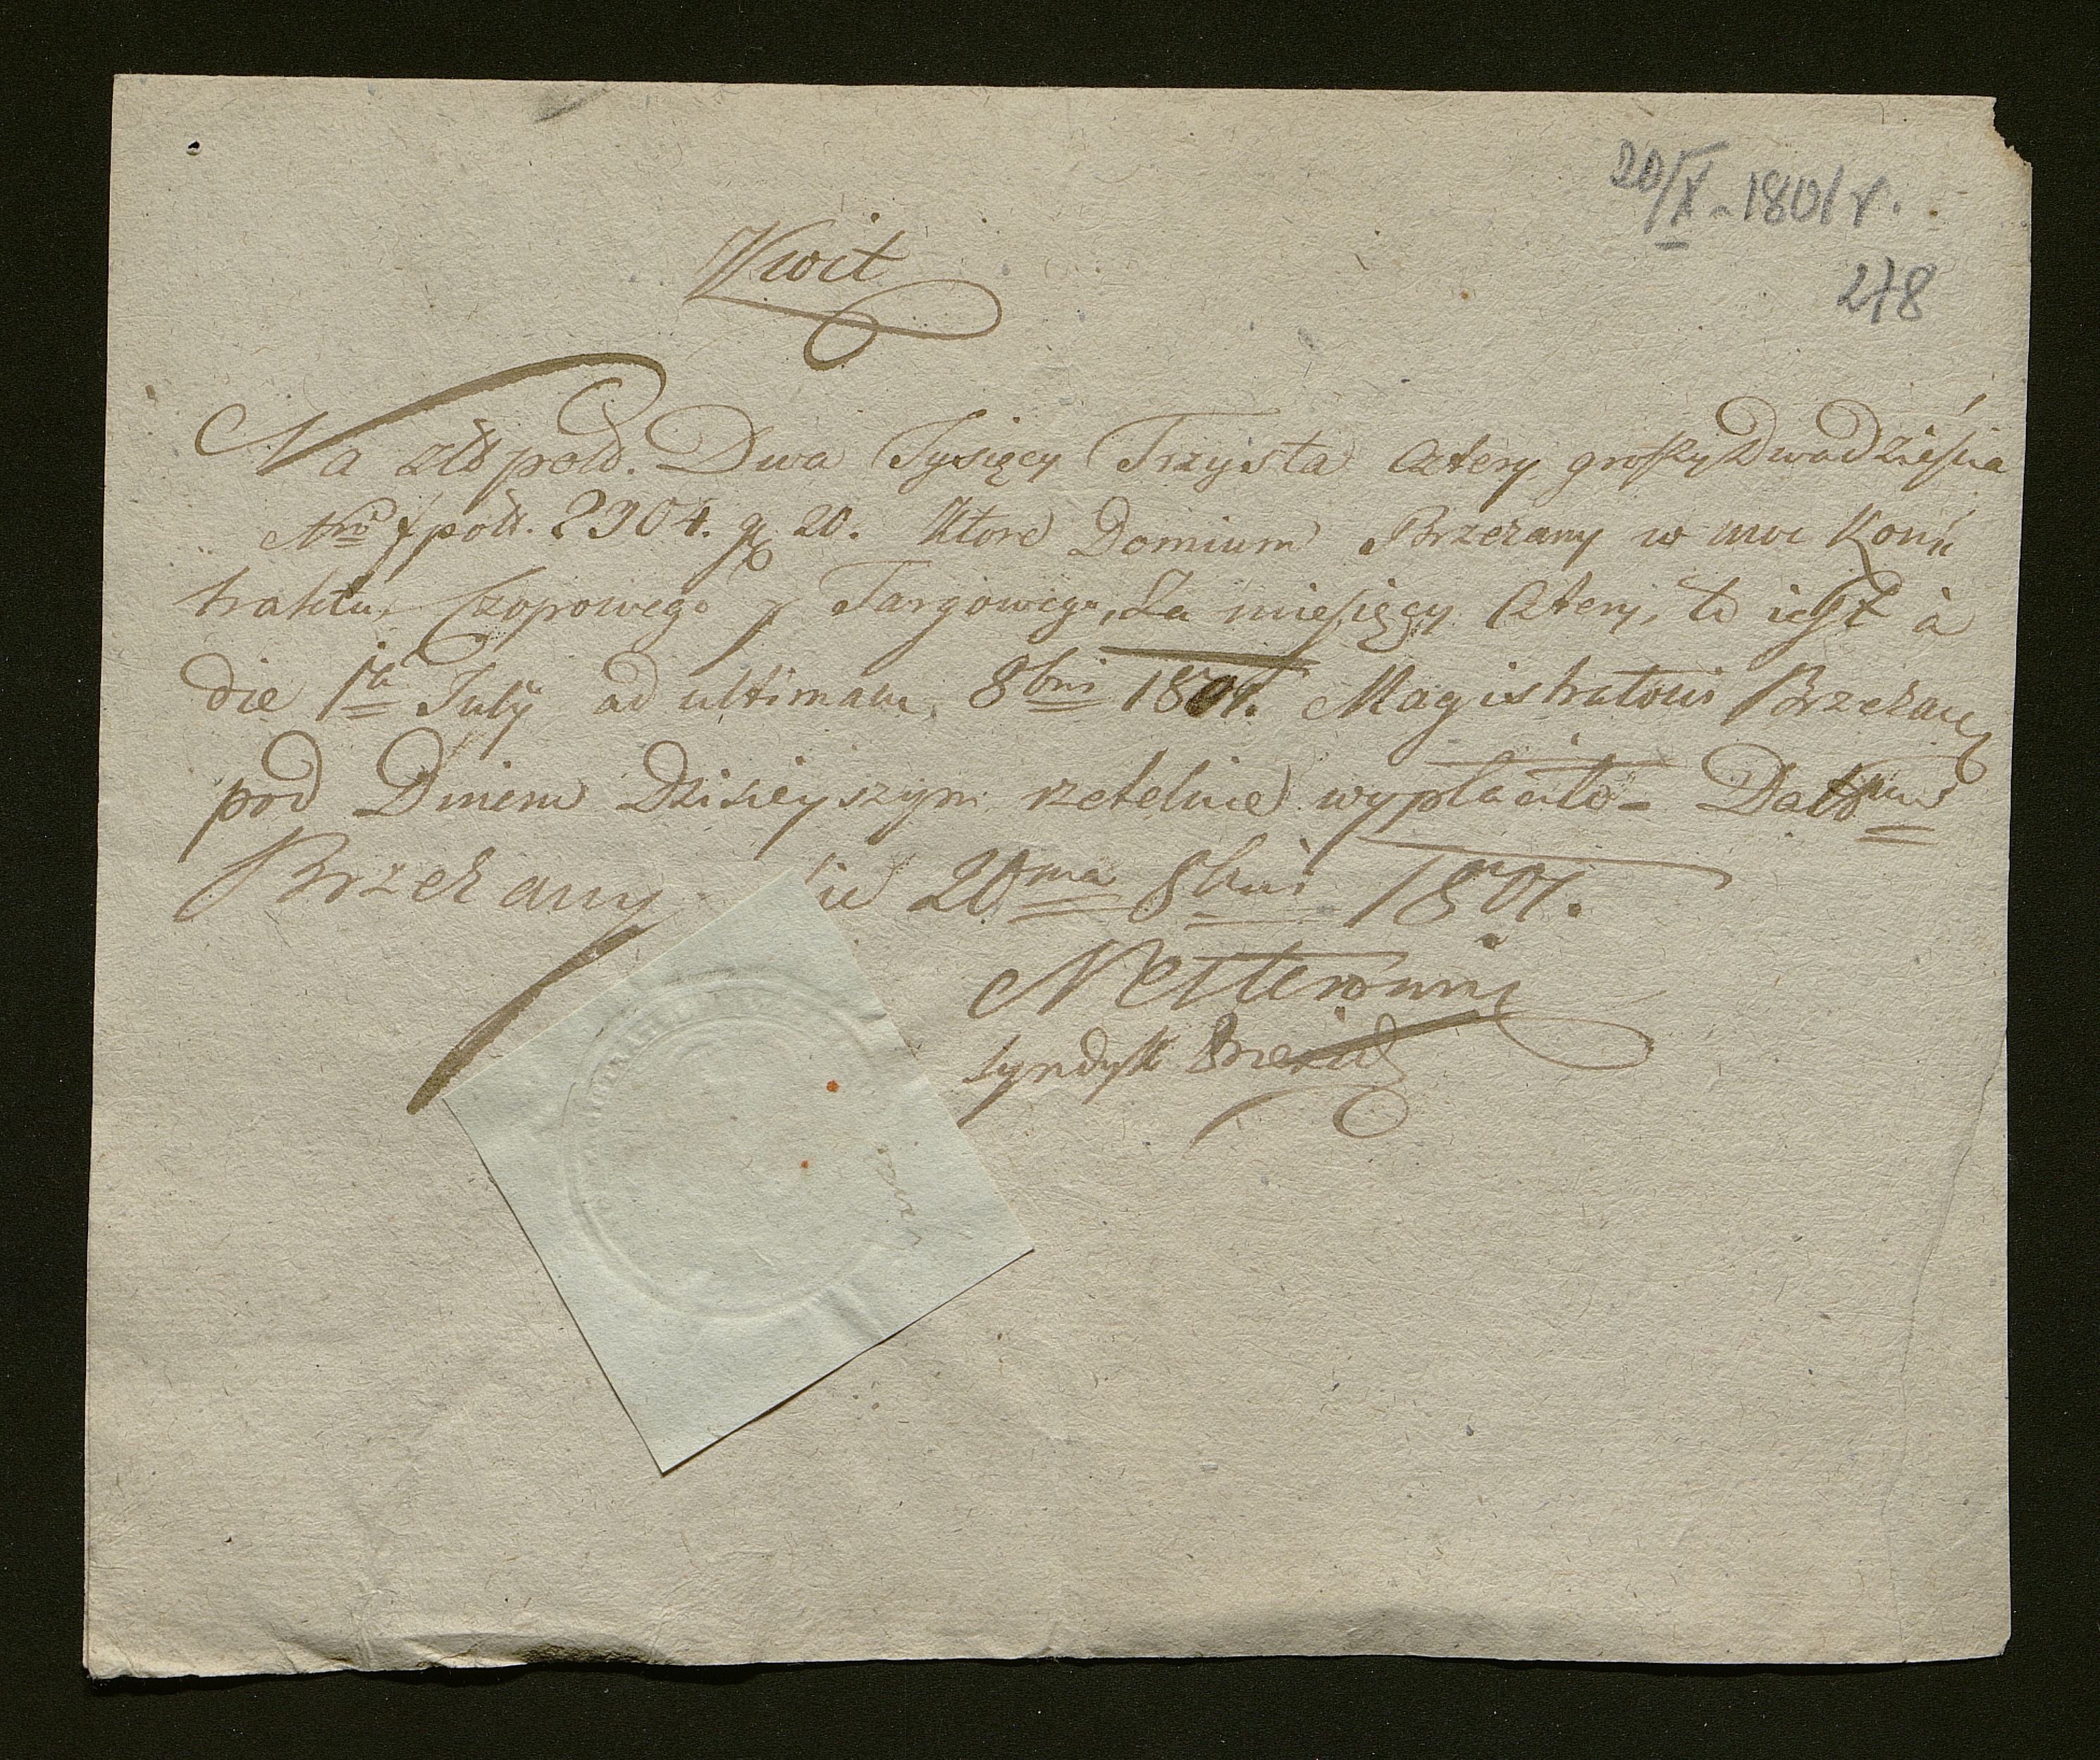 20/X - 1801 r.
278
Kwit
Na złł polł. Dwa Tysięcy Trzysta Cztery groszy Dwadzieścia
Nro f polł. 2304. gr 20. Które Domium Brzeżany w moc Kon„
traktu, Czopowego y Targowego, Za miesięcy Cztery, to iest à
die 1ma July ad ultimam 8bris 1801. Magistratowi Brzeżań
pod Dniem Dzisieyszym rzetelnie wypłaciło - Datum
Brzeżany 20ma 8bris 1801.
Syndyk